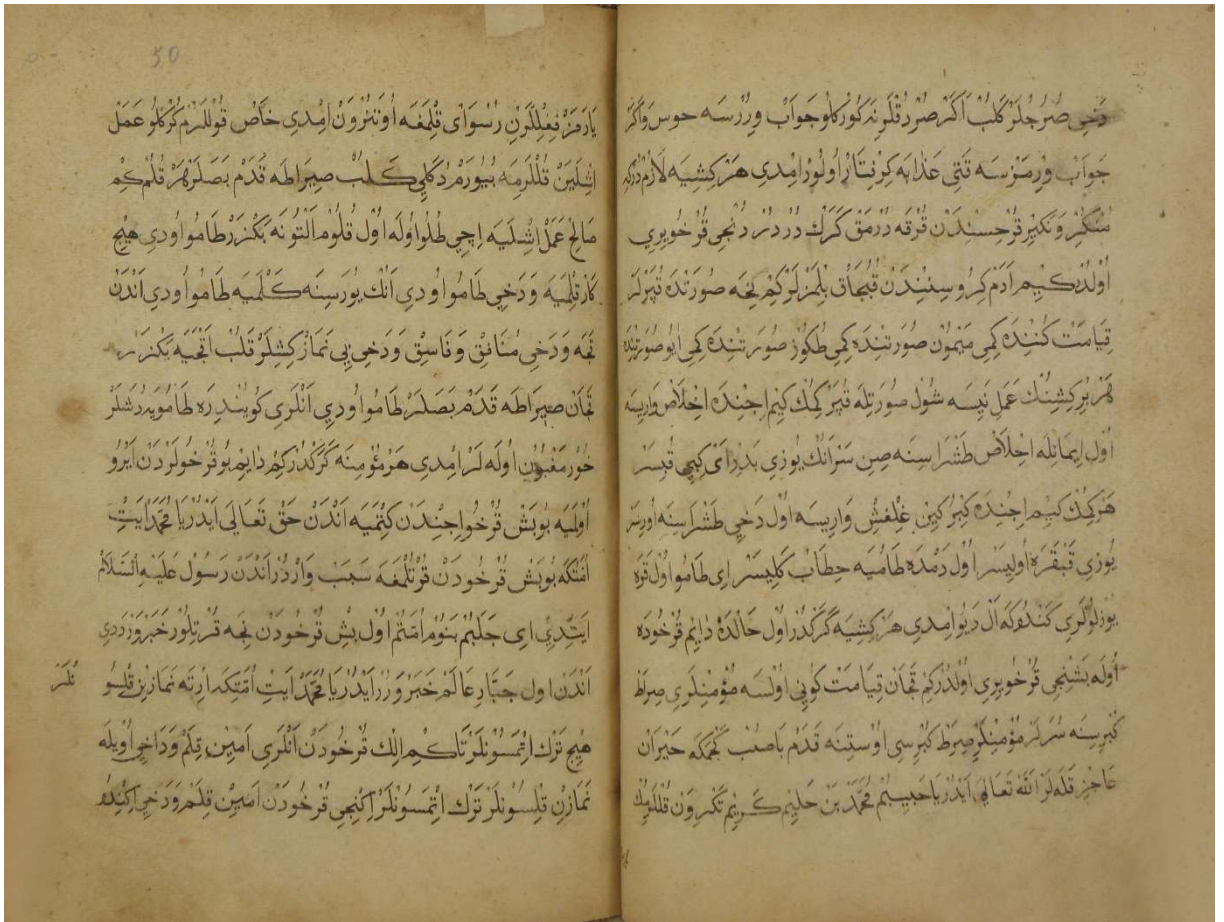 دَخِي صُرُجُلَرْ كَلُبْ اَكَرْ صُرْدُقْلَرِنَه كُورْكلُو جَوَابْ وِرُرْسَه خوس وَاكَرْ
جَوَابْ وِرْمَزْسَه قَتِي عَذَابَه كِرِفْتَارْ اُولُورْ اِمْدِي هَرْ كِشِيَه لَازِمْدُرْكِه
مُنْكَرْ وَ نَكِيرْ قُرْخُسِنْدَنْ قُرْقَه دُرْمَقْ كَرَكْ دُرْ دُرْدُنْجِي قُرْخُو يِرِي
اُولْدُرْكِيمْ اٰدَمْ كُرُوسِنْدَنْ قُبُجَاْقْ بِلْمَزْلَرْكِمْ نِجَه صُورَتْدَه قُپَرْلَرْ
قِيَامَتْ كُنِنْدَه كِمِي مَيْمُونْ صُورَتِنْدَه كِمِي طُكُوزْ صُورَتِنْدَه كِمِي اَيُو صُورَتِنْدَه
هَرْ بِرْ كِشِينُكْ عَمَلِ نَيِسَه شُولْ صُورَتِلَه قُپَرْ كِمُكْ كِيمْ اِجِنْدَه اِخْلَاصْ وَارِيسَه
اُولْ اِيمَانِلَه اِخْلَاصْ طَشْرَاسِنَه صِنْ سَرْ اَنُكْ يُوزِي بَدِرْ اَيْ كِبِي قُپِسَرْ
هَرْ كِمُكْ كِيمْ اِجِنْدَه كِبِرْ كِينْ غِلْغِشْ وَارِيسَه اُولْ دَخِي طَشْرَاسِنَه اُورِسَرْ
يُوزِي قَپْقَرَه اُولِيسَرْ اُولْ دَمْدَه طَامُيَه خِطَابْ كَلِيسَرْ اِي طَامُو اُولْ قَرَه
يُوزلُولَرِي كَنْدُوكَه اَلْ دِيُو اِمْدِي هَرْ كِشِيَه كَرَكْدُرْ اُولْ حَالْدَه دَايِمْ قُرْخُودَه
اُولَه بَشِنْجِي قُرْخُو يِرِي اُولْدُرْكِمْ قَچَانْ قِيَامَتْ كُونِي اُولْسَه مُؤْمِنْلَرِي صِرَاطْ
كُپْرِسِنَه سُرَلَرْ مُؤْمِنْلَرْ صِرَطْ كُپْرِسِي اُوسْتِنَه قَدَمْ بَاصُبْ كَچْمَكَه حَيْرَانْ
عَاجِزْ قَلَه لَرْ اَللّٰه تَعَالٰي اَيْدُرْ يَا حَبِيبُمْ مُحَمَّدْ بَنْ حَلِيمْ كَرِيمْ تَكْرِوَنْ قُلْلَرِمُكْ
يَارَمَزْ فِعِلْلَرِنْ رُسْوَايْ قِلْمَغَه اُوتَنُرْوَنْ اِمْدِي خَاصْ قُوللَرُمْ كُرْكلُو عَمَلْ
اِشْلَيَنْ قُلْلَرِمَه بُيُورَمْ دُكَلِي كَلُبْ صِيرَاطَه قَدَمْ بَصَلَرْ هَرْ قُلُمْ كِمْ
صَالِحْ عَمَلْ اِشْلَيَه اِچِي طُلُو اُولَه اُولْ قُلُومْ اَلْتُونَه بَكْزَرْ طَامُو اُودِي هِيچْ
كَارْ قِلْمَيَه وَدَخِي طَامُو اُودِي اَنُكْ يُورَسِنَه كَلْمَيَه طَامُو اُودِي اَنْدَنْ
قَچَه وَدَخِي مُنَافِقْ وَ فَاسِقْ وَدَخِي بِي نَمَازْ كِشِلَرْ قَلْبْ اَقْچَيَه بَكْزَرْلَرْ
قَچَانْ صِيرَاطَه قَدَمْ بَصَلَرْ طَامُو اُودِي اَنْلَرِي كُويُنْدِرَه طَامُويَه دُشَلَرْ
خُورْ مَغْبُونْ اُولَه لَرْ اِمْدِي هَرْ مُؤْمِنَه كَرَكْدُرْكِمْ دَايِمْ بُو قُرْخُولَرْدَنْ اَيْرُو
اُولْمَيَه بُو بَشْ قُرْخُو اِچِنْدَنْ كِتْمَيَه اَنْدَنْ حَقْ تَعَالَى اَيْدُرْ يَا مُحَمَّدْ اَيِتْ
اُمَّتُكَه بُو بَشْ قُرْخُودَنْ قُرْتُلْمَغَه سَبَبْ وَارْدُرْ اَنْدَنْ رَسُولْ عَلَيْهِ السَّلَامْ
اَيِتْدِي اِي جَلَبُمْ بَنُومْ اُمَّتُمْ اُولْ بَشْ قُرْخُودَنْ نِجَه قُرْتِلُورْ خَبَرْ وِرْ دِدِي
اَنْدَنْ اول جَبَّارِ عَالَمْ خَبَرْ وِرُرْ اَيْدُرْ يَا مُحَمَّدْ اَيِتْ اُمَّتِكَه اِرْتَه نَمَازِينْ قِلْسُو نْلَرْ
هِيچْ تَرْكْ اِتْمَسُونْلَرْ تَاكِمْ اِلْكْ قُرْخُودَنْ اَنْلَرِي اَمِينْ قِلَمْ وَدَاخِي اُويْلَه
نَمَازِنْ قِلْسُونْلَرْ تَرْكْ اِتْمَسُونْلَرْ اِكِنْجِي قُرْخُودَنْ اَمِينْ قِلَمْ وَدَخِي اِكِنْدُ